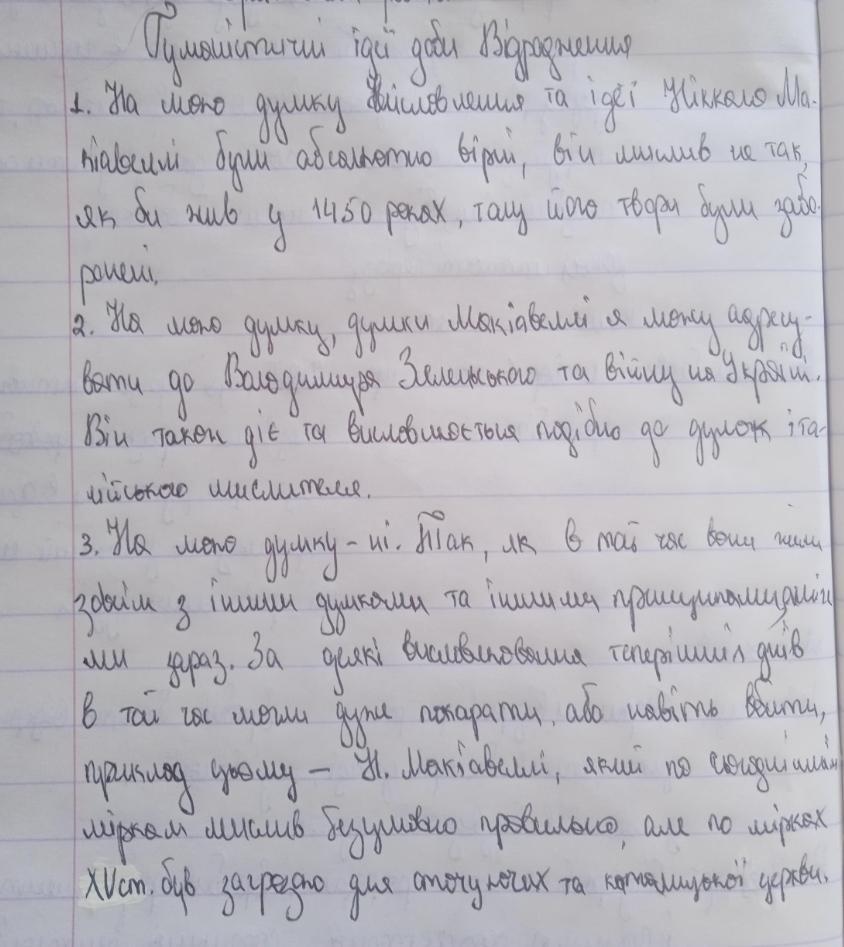 Гуманістичні ідеї доби Відродження
1. На мою думку висловлення та ідеї Нікколо Ма-
кіавеллі були абсолютно вірні, він мислив не так,
як би жив у 1450 роках, тому його твори були забо-
ронені.
2. На мою думку, думки Макіавеллі я можу адресу-
вати до Володимира Зеленського та війну на Україні.
Він також діє та висловлюється подібно до думок іта-
лійського мислителя.
3. На мою думку - ні. Так, як в той час вони жили
зовсім з іншими думками та іншими принципами, ніж
ми зараз. За деякі висловлювання теперішніх днів
в той час могли дуже покарати, або навіть вбити,
приклад цьому - Н. Макіавеллі, який по сьогоднішнім
міркам мислив безумовно правильно, але по мірках
XV ст. був загрозою для оточуючих та католицької церкви.